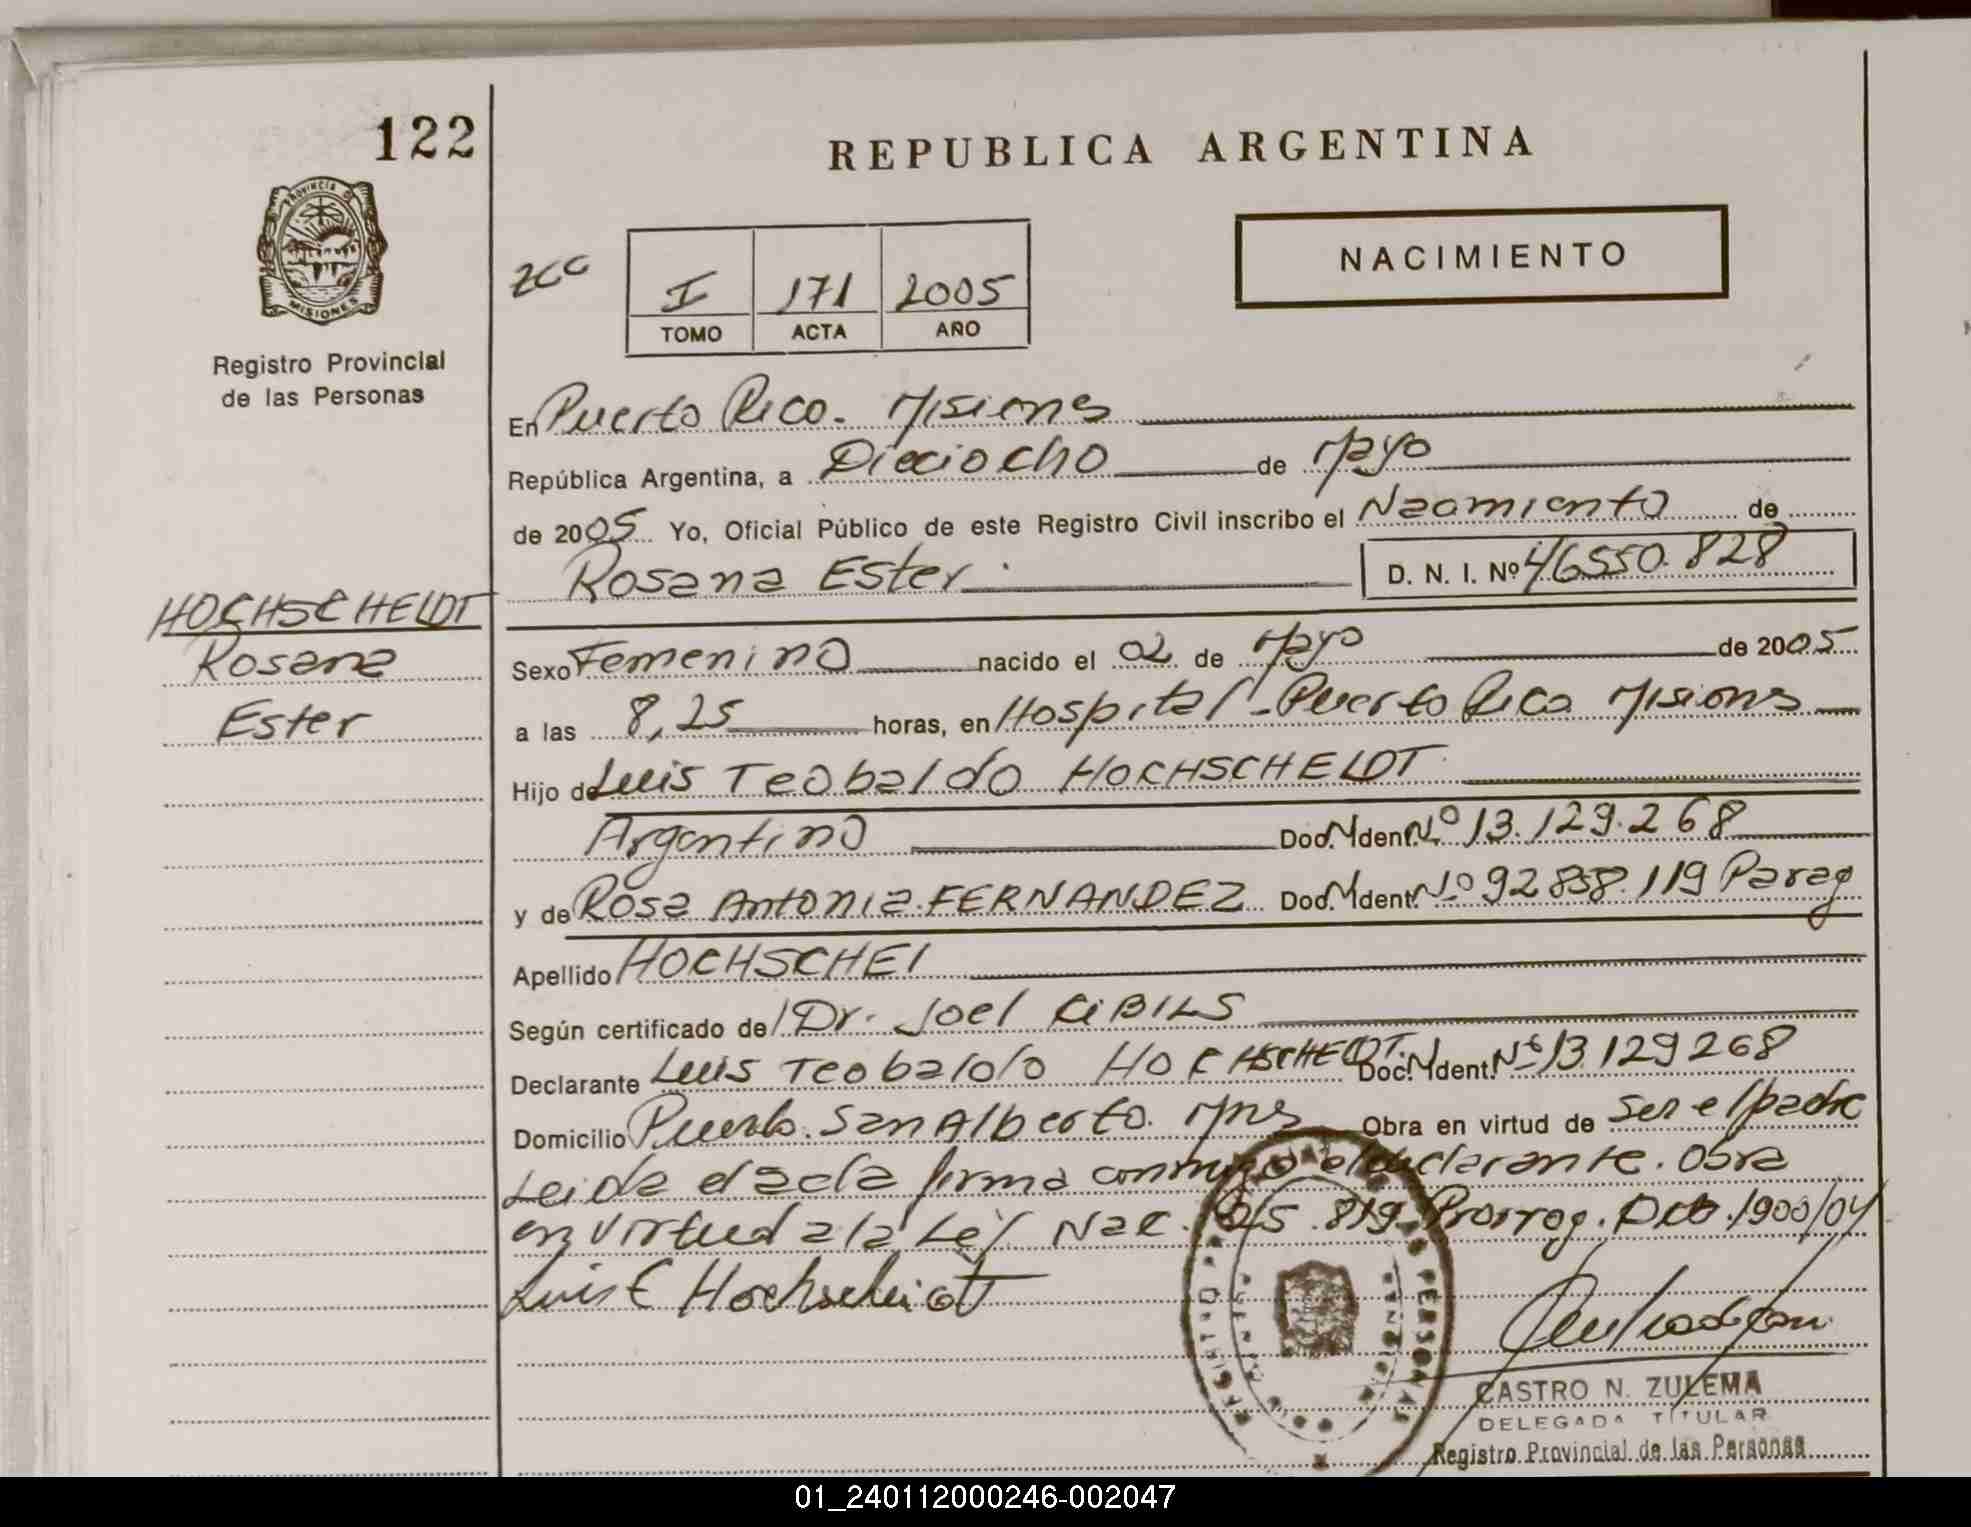 122
REPUBLICA ARGENTINA
PROVINCIA DE
MISIONES
Registro Provincial
de las Personas
I 171 2005
TOMO ACTA AÑO
NACIMIENTO
En Puerto Rico. Misiones
República Argentina, a Dieciocho de Mayo
de 2005 Yo, Oficial Público de este Registro Civil inscribo el Nacimiento de
Rosana Ester. D. N. I. Nº 46550.828
HOCHSCHELDT
Rosana
Ester
Sexo Femenino nacido el 02 de Mayo de 2005
a las 8,25 horas, en Hospital - Puerto Rico Misiones
Hijo de Luis Teobaldo HOCHSCHELDT
Argentino Doc. Ident. Nº 13.129.268
y de Rosa Antonia FERNANDEZ Doc. Ident. Nº 92858.119 Parag
Apellido HOCHSCHEI
Según certificado del Dr. Joel CIBILS
Declarante Luis Teobaldo HOCHSCHELDT. Doc. Ident. Nº 13129268
Domicilio Puerto. San Alberto. Mnes Obra en virtud de Ser el padre
Leida el acta firma conmigo el declarante. Obra
en virtud a la Ley Nac. 25.819. Prorrog. Dcto. 1900/04
Luis Hochscheidt
CASTRO N. ZULEMA
DELEGADA TITULAR
Registro Provincial de las Personas
01_240112000246-002047